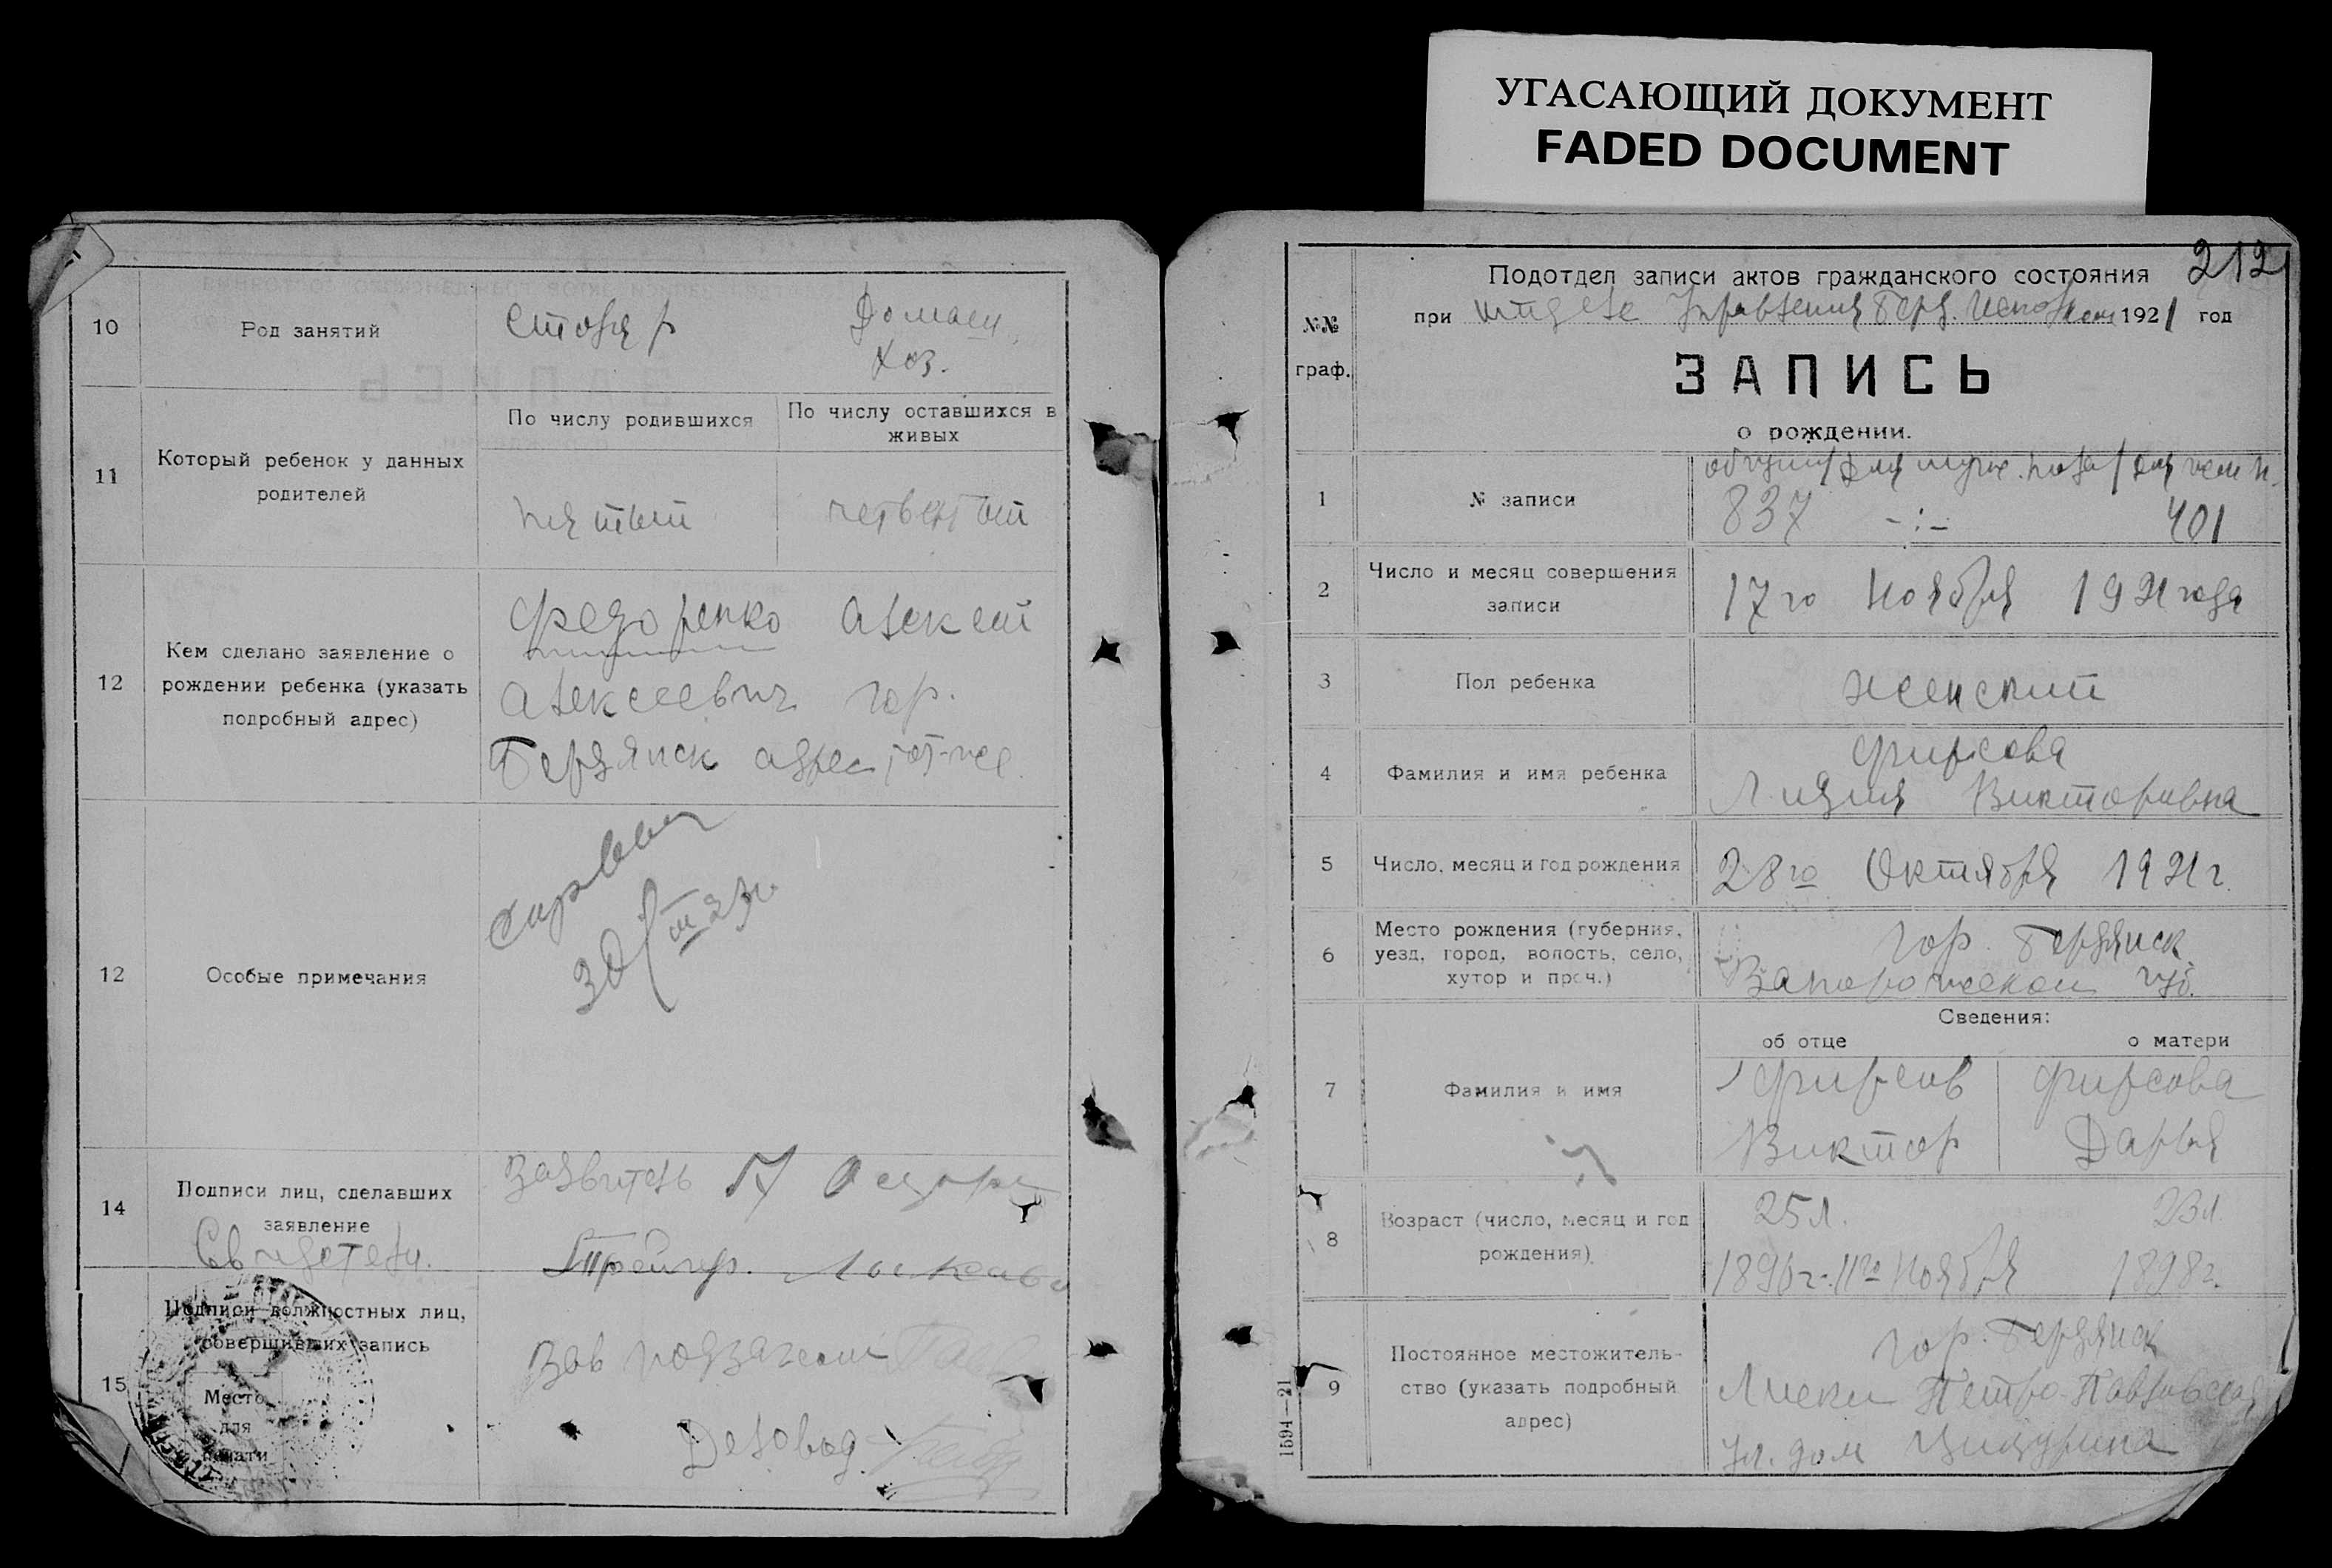 УГАСАЮЩИЙ ДОКУМЕНТ
FADED DOCUMENT
10
Род занятий
Столяр
Домаш.
Хоз.
11
Который ребенок у данных
родителей
По числу родившихся
По числу оставшихся в
живых
пятый
четвертый
12
Кем сделано заявление о
рождении ребенка (указать
подробный адрес)
Федоренко Алексей
Алексеевич гор.
Бердянск адрес тот-же
12
Особые примечания
30/III 23г.
14
Подписи лиц, сделавших
заявление
Свидетели.
Заявитель
15
Подписи должностных лиц,
совершивших запись
Место
для
печати
Зав подзагсом
Деловод.
212
№№
граф.
Подотдел записи актов гражданского состояния
при Отделе Управления Берд. Исполкома 1921 год
ЗАПИСЬ
о рождении.
1
№ записи
общий/для мужс. пола/для жен п.
837 -:- 401
2
Число и месяц совершения
записи
17го Ноября 1921 года
3
Пол ребенка
женский
4
Фамилия и имя ребенка
Фирсова
Лидия Викторовна
5
Число, месяц и год рождения
28го Октября 1921 г.
6
Место рождения (губерния,
уезд, город, волость, село,
хутор и проч.)
гор. Бердянск
Запорожской губ.
Сведения:
об отце
о матери
7
Фамилия и имя
Фирсов
Виктор
Фирсова
Дарья
8
Возраст (число, месяц и год
рождения)
25 л.
23 л.
1896 г. 11го Ноября
1898 г.
9
Постоянное местожитель-
ство (указать подробный
адрес)
гор. Бердянск
Лиски Петро-Павловская
ул. дом
1594—21